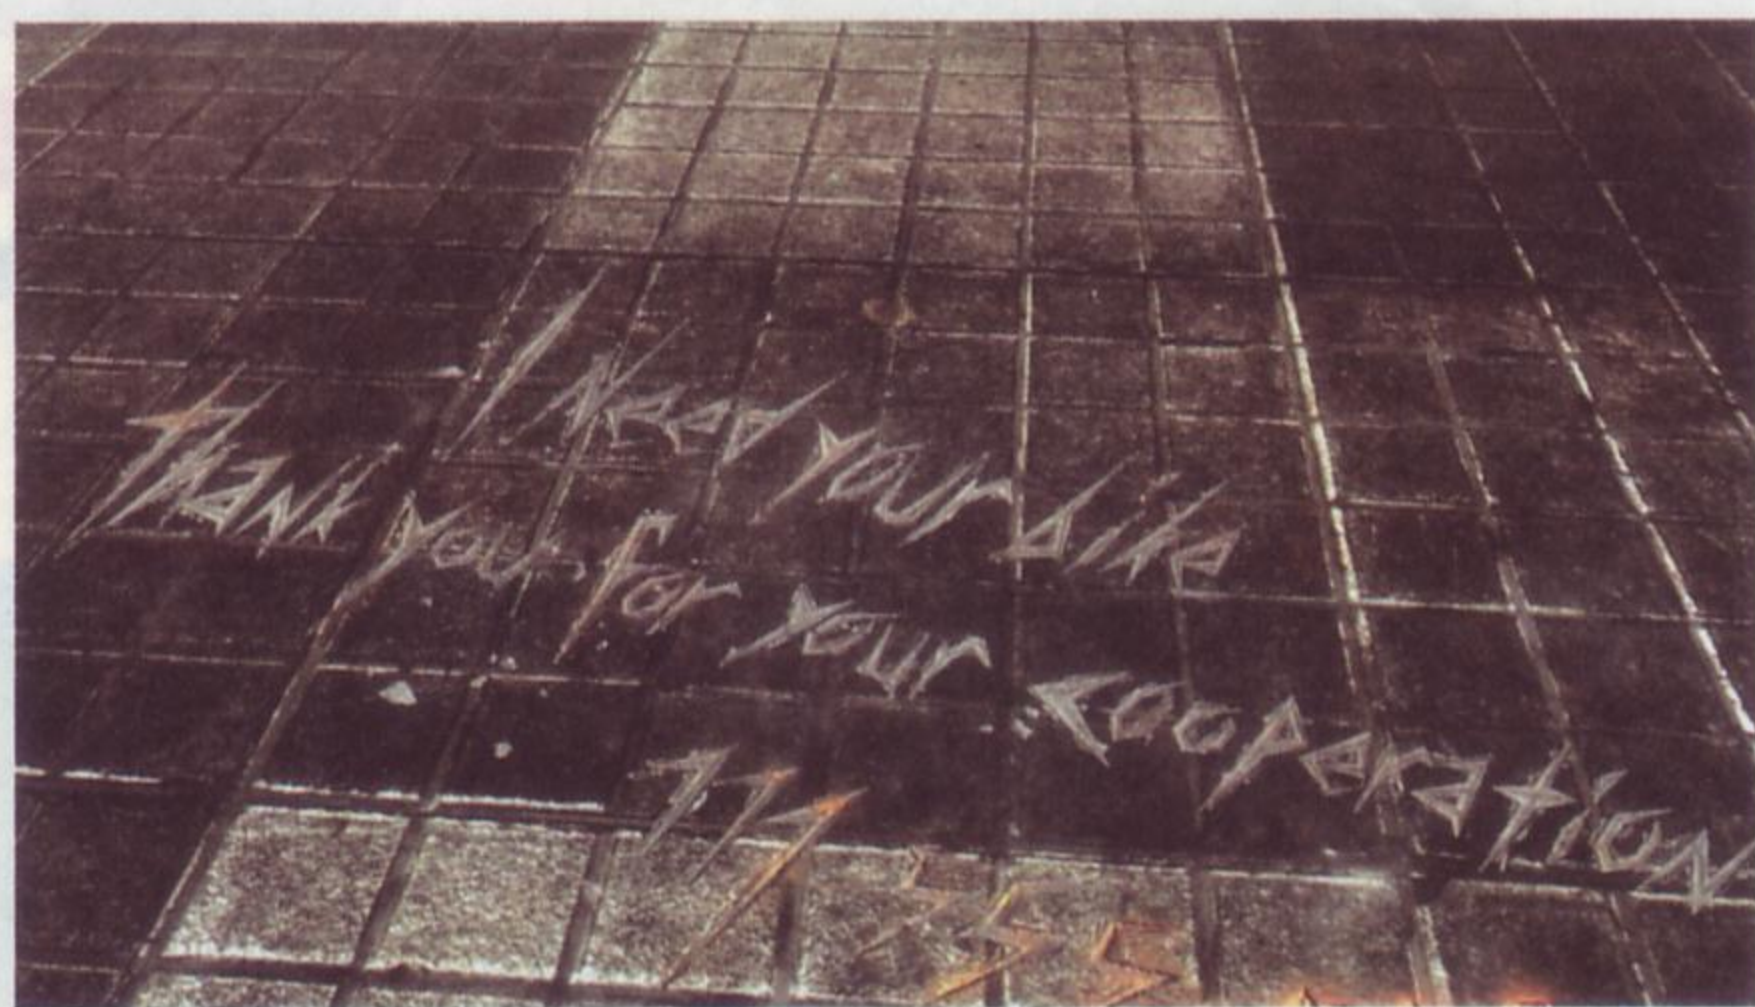 I Need your bike
Thank you for your cooperation